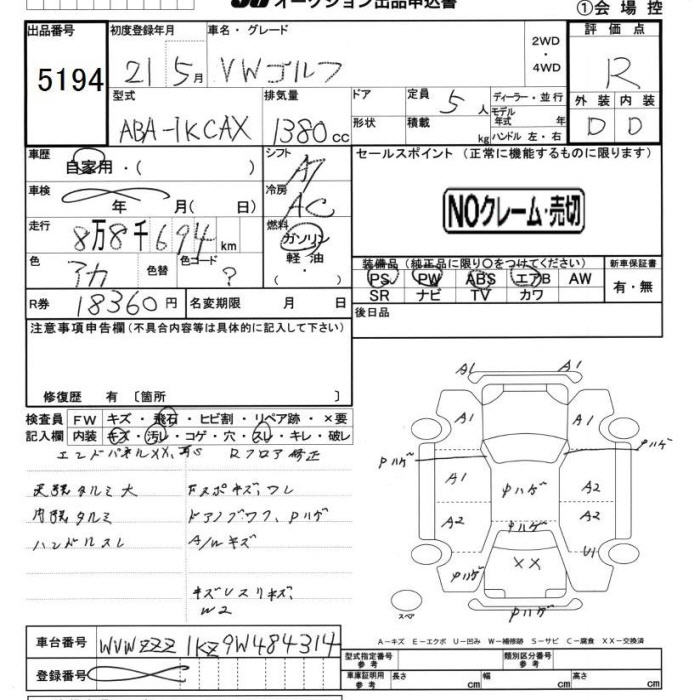 オークション出品申込書
①会場控
出品番号 初度登録年月 車名・グレード 評価点
5194 21 5月 VWゴルフ 2WD・4WD R
型式 排気量 ドア 定員 5人 ディーラー・並行 外装 内装
ABA-1KCAX 1380cc 形状 積載 kg モデル年式 年 ハンドル 左・右 D D
車歴 自家用・( ) シフト A/ セールスポイント (正常に機能するものに限ります)
車検 年 月( 日) 冷房 AC NOクレーム・売切
走行 8万8千694km 燃料 ガソリン・軽油・( )
色 アカ 色替 色コード ? 装備品 (純正品に限り〇をつけてください) 新車保証書
PS PW ABS エアB AW 有・無
SR ナビ TV カワ
R券 18360円 名変期限 月 日 後日品
注意事項申告欄 (不具合内容等は具体的に記入して下さい)
修復歴 有 〔箇所 〕
検査員 FW キズ・飛石・ヒビ割・リペア跡・×要
記入欄 内装 キズ・汚レ・コゲ・穴・スレ・キレ・破レ
エンドパネルXX、 Rフロア修正
天張タルミ大 Fスポキズ、ワレ
内張タルミ ドアノブワク、Pハゲ
ハンドルスレ A/Wキズ
キズUスリキズ、
W2
A1 A1
A1 A1
Pハゲ Pハゲ
A1 Pハゲ A2
A2 Pハゲ A2
U1
Pハゲ XX
スペア Pハゲ
A-キズ E-エクボ U-凹み W-補修跡 S-サビ C-腐食 XX-交換済
車台番号 WVWZZZ1KZ9W484314
型式指定番号 参考 類別区分番号 参考
登録番号 車庫証明用 参考 長さ cm 幅 cm 高さ cm